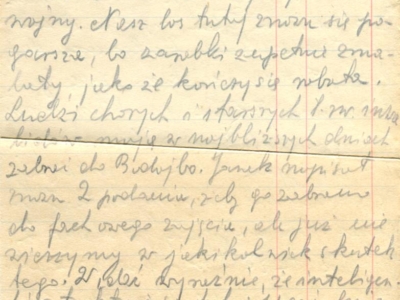 wojny. Nasz los tutaj znowu się po-
garsza, bo zarobki zupełnie zma-
lały, jako że kończy się robota.
Ludzi chorych i starszych t. zw. inwa-
lidów mają w najbliższych dniach
zabrać do Bodajbo. Janek napisał
znow 2 podania, żeby go zabrano
do fachowego zajęcia, ale już nie
wierzymy w jakikolwiek skutek
tego. Widać wyraźnie, że inteligen-